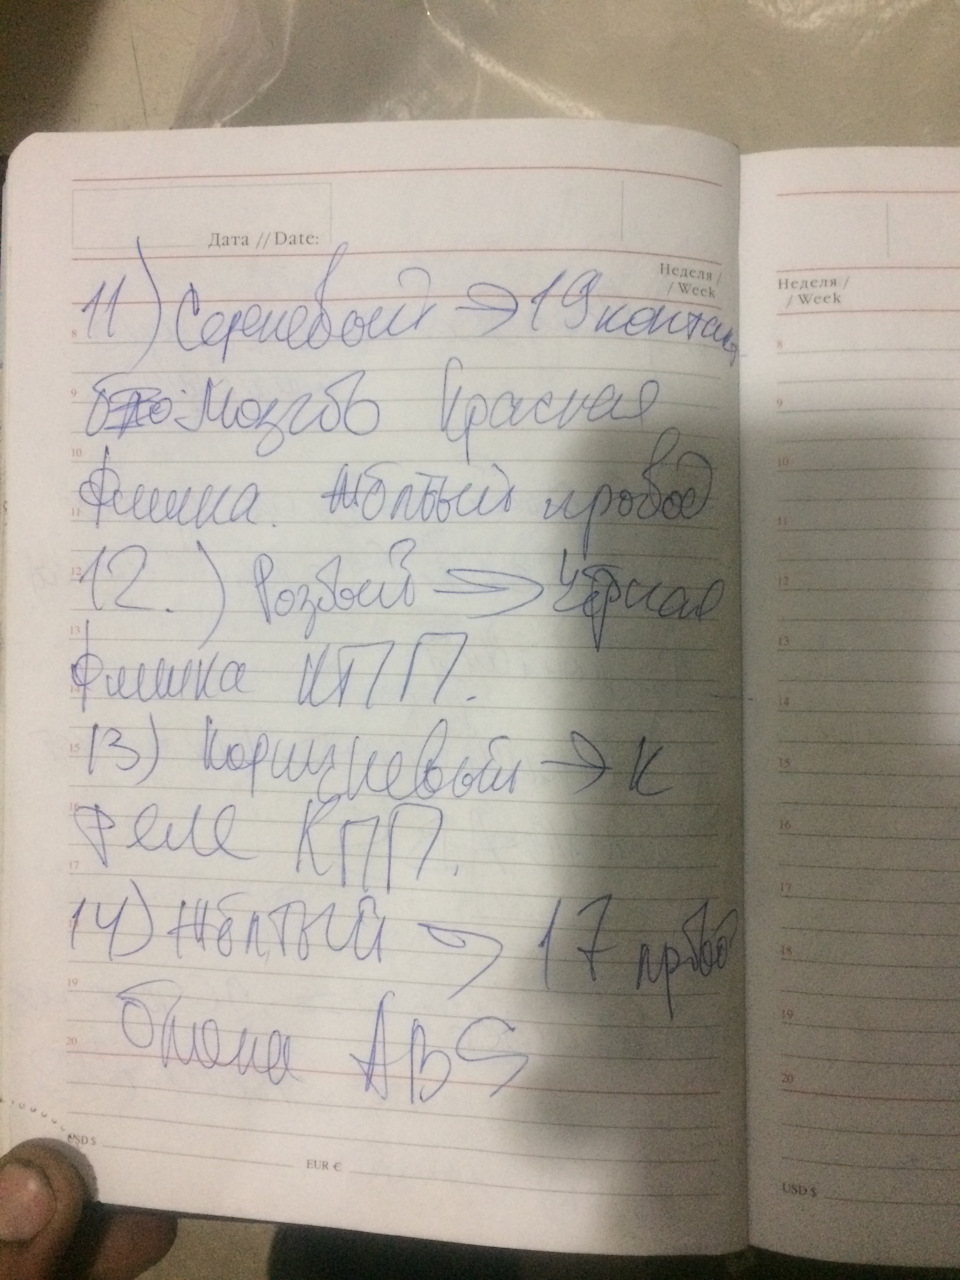 Дата // Date:
Неделя /
/ Week
11) Сереневый → 19 контак
Мозгов Красная
фишка. Жёлтый провод
12.) Розвый → Чёрная
фишка КПП.
13) Коричневый → К
реле КПП.
14) Жёлтый → 17 провод
блока ABS
8
9
10
11
12
13
14
15
16
17
19
20
USD $
EUR €
Неделя /
/ Week
8
9
10
11
12
13
14
15
16
17
18
19
20
USD $